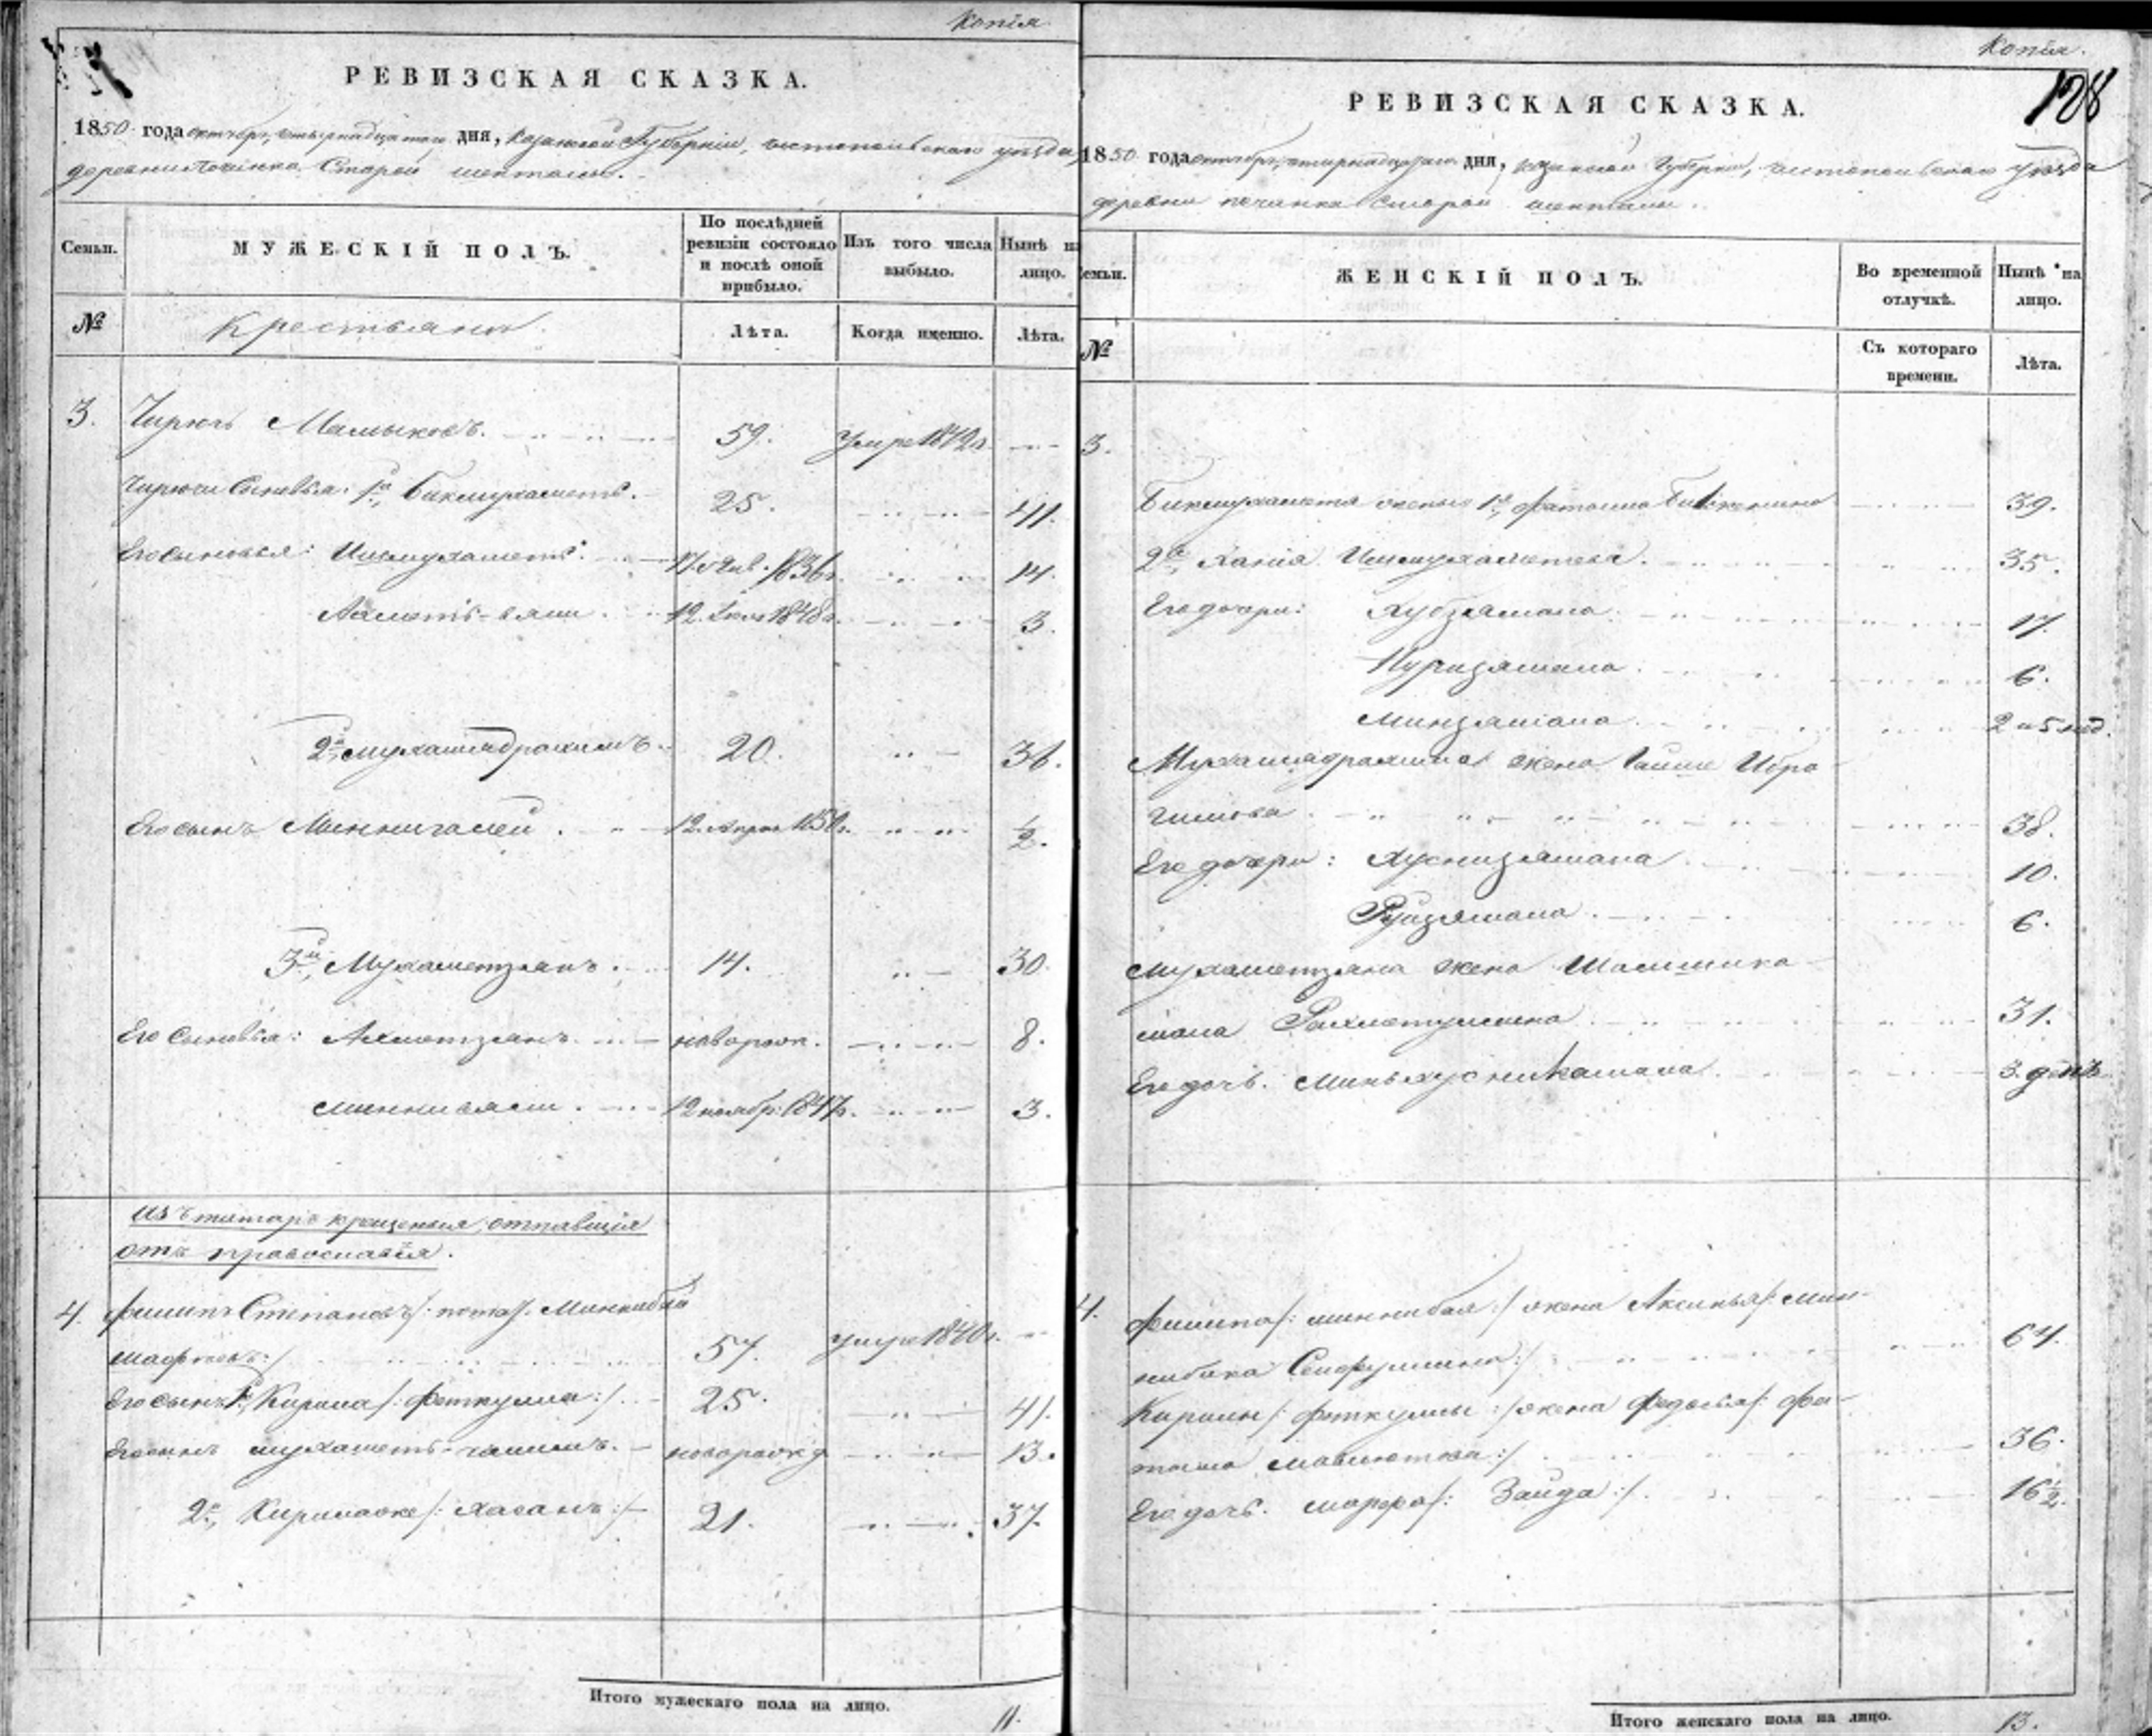 Копія
РЕВИЗСКАЯ СКАЗКА.
1850 года октября, четырнадцатого дня, Казанской Губерніи, чистопольскаго уѣзда,
деревни Починка Старой шентали.
Семьи.
МУЖЕСКІЙ ПОЛЪ.
По послѣдней ревизіи состояло и послѣ оной прибыло.
Изъ того числа выбыло.
Нынѣ на лицо.
№
Крестьяне.
Лѣта.
Когда именно.
Лѣта.
3. Чирючь Мамыковъ. 59. умре 1842г.
Чирючи Сыновья: 1й, Бикмухаметъ. 25. 41.
Его сыновья: Ишмухаметъ. 1836г. 14.
Ахметъ-вали. 12. 1848г. 3.
2й, мухаммадрахимъ. 20. 36.
Его сынъ Миннигалей. 12. Апрѣл 1850г. ½.
3й, Мухаметзянъ. 14. 30.
Его Сыновья: Ахметзянъ. новорож. 8.
миннивали. 12 ноябр: 1847г. 3.
Изъ татаръ крещеныя, отпавшія
отъ православія.
4. Филипъ Степановъ /: потат. Миннибай
57. умре 1840г.
Его сынъ 1й, Кирила /: Фаткулла :/ 25. 41.
Его сынъ мухаметъ-галимъ. новорожд 13.
2й, /: Хасанъ :/ 21. 37.
Итого мужескаго пола на лицо. 11.
Копія.
128
РЕВИЗСКАЯ СКАЗКА.
1850 года октября, четырнадцатаго дня, Казанской Губерніи, чистопольскаго уѣзда
деревни починка Старой шентали.
Семьи.
ЖЕНСКІЙ ПОЛЪ.
Во временной отлучкѣ.
Нынѣ на лицо.
№
Съ котораго времени.
Лѣта.
3.
Бикмухаметя жены 1я, Фатьима 39.
2я, Хания Ишмухаметева. 35.
Его дочери: Хубзямала. 17.
Нуризямала. 6.
Минзямала. 2 и 5 нед.
Мухаммадрахима жена Ибра-
гимова. 38.
Его дочери: Хуснизямала 10.
6.
мухаметзяна жена Шамсика-
мала Рахметуллина 31.
Его дочь. Миньхусникамала. 3. день
4. Филипа /: миннибая :/ жена Аксинья /: Мин-
нибика Сейфуллина :/ 64.
Кирилы /: фаткуллы :/ жена Федосья /: Фа-
тыма мавлютова :/ 36.
Его дочь. марфа /: Зайда :/ 16½.
Итого женскаго пола на лицо. 13.